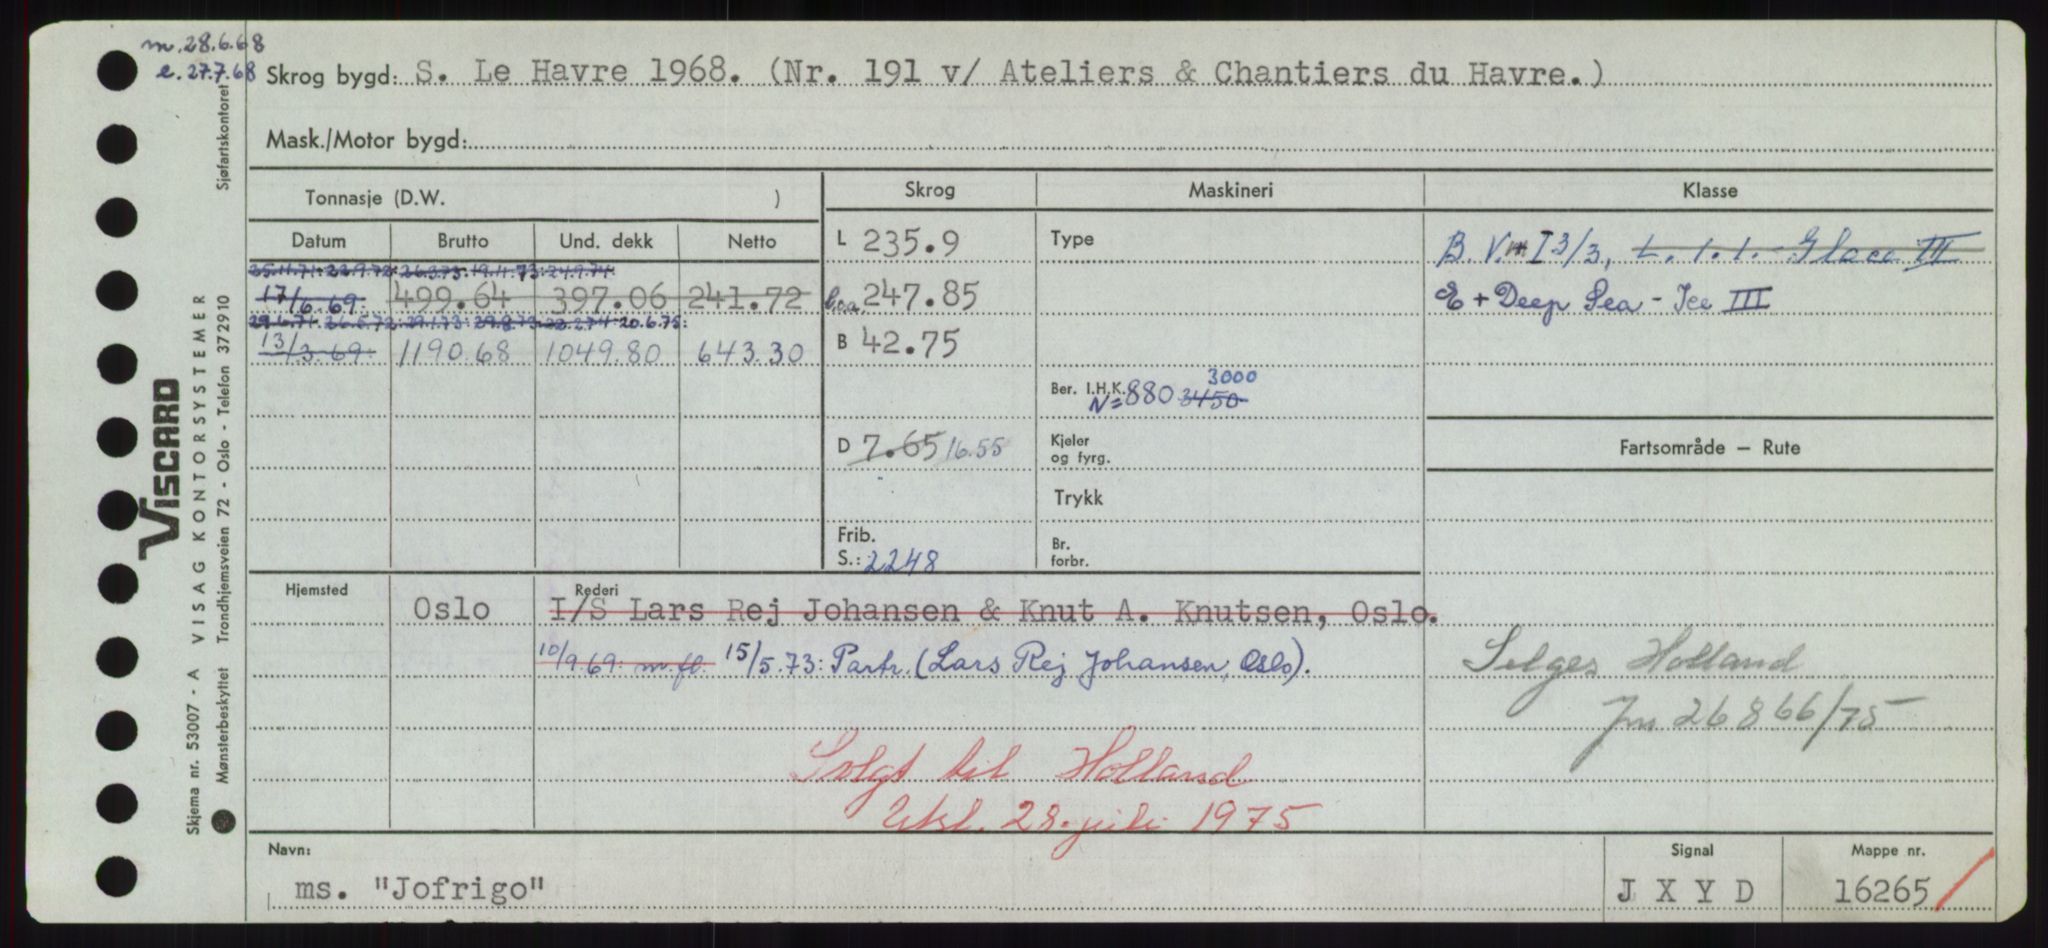 m. 28.6.68
e. 27.7.68
Skrog bygd: S. Le Havre 1968. (Nr. 191 v/ Ateliers & Chantiers du Havre.)
Mask./Motor bygd:
Tonnasje (D.W. )
Skrog
Maskineri
Klasse
Datum Brutto Und. dekk Netto
L 235.9
Type
B.V. I 3/3, L. 1. 1. - Glace III
25.11.71: 22.9.72: 26.3.73: 19.11.73: 24.9.74
17/6.69. 499.64 397.06 241.72
loa. 247.85
& + Deep Sea - Ice III
29.6.71: 26.5.72: 29.1.73: 29.8.73: 22.2.74: 20.6.75:
13/3.69. 1190.68 1049.80 643.30
B 42.75
3000
Ber. I.H.K. N= 880 3450
D 7.65 16.55
Kjeler
og fyrg.
Fartsområde — Rute
Trykk
Frib.
S.: 2248
Br.
forbr.
Hjemsted
Rederi
Oslo I/S Lars Rej Johansen & Knut A. Knutsen, Oslo.
10/9.69: m.fl. 15/5.73: Partr. (Lars Rej Johansen, Oslo).
Selges Holland
Jnr 26866/75
Solgt til Holland
Utsl. 28. juli 1975
Navn:
ms. "Jofrigo"
Signal
J X Y D
Mappe nr.
16265
Sjøfartskontoret
VISCARD
VISAG KONTORSYSTEMER
Skjema nr. 53007 - A
Mønsterbeskyttet Trondhjemsveien 72 - Oslo - Telefon 372910